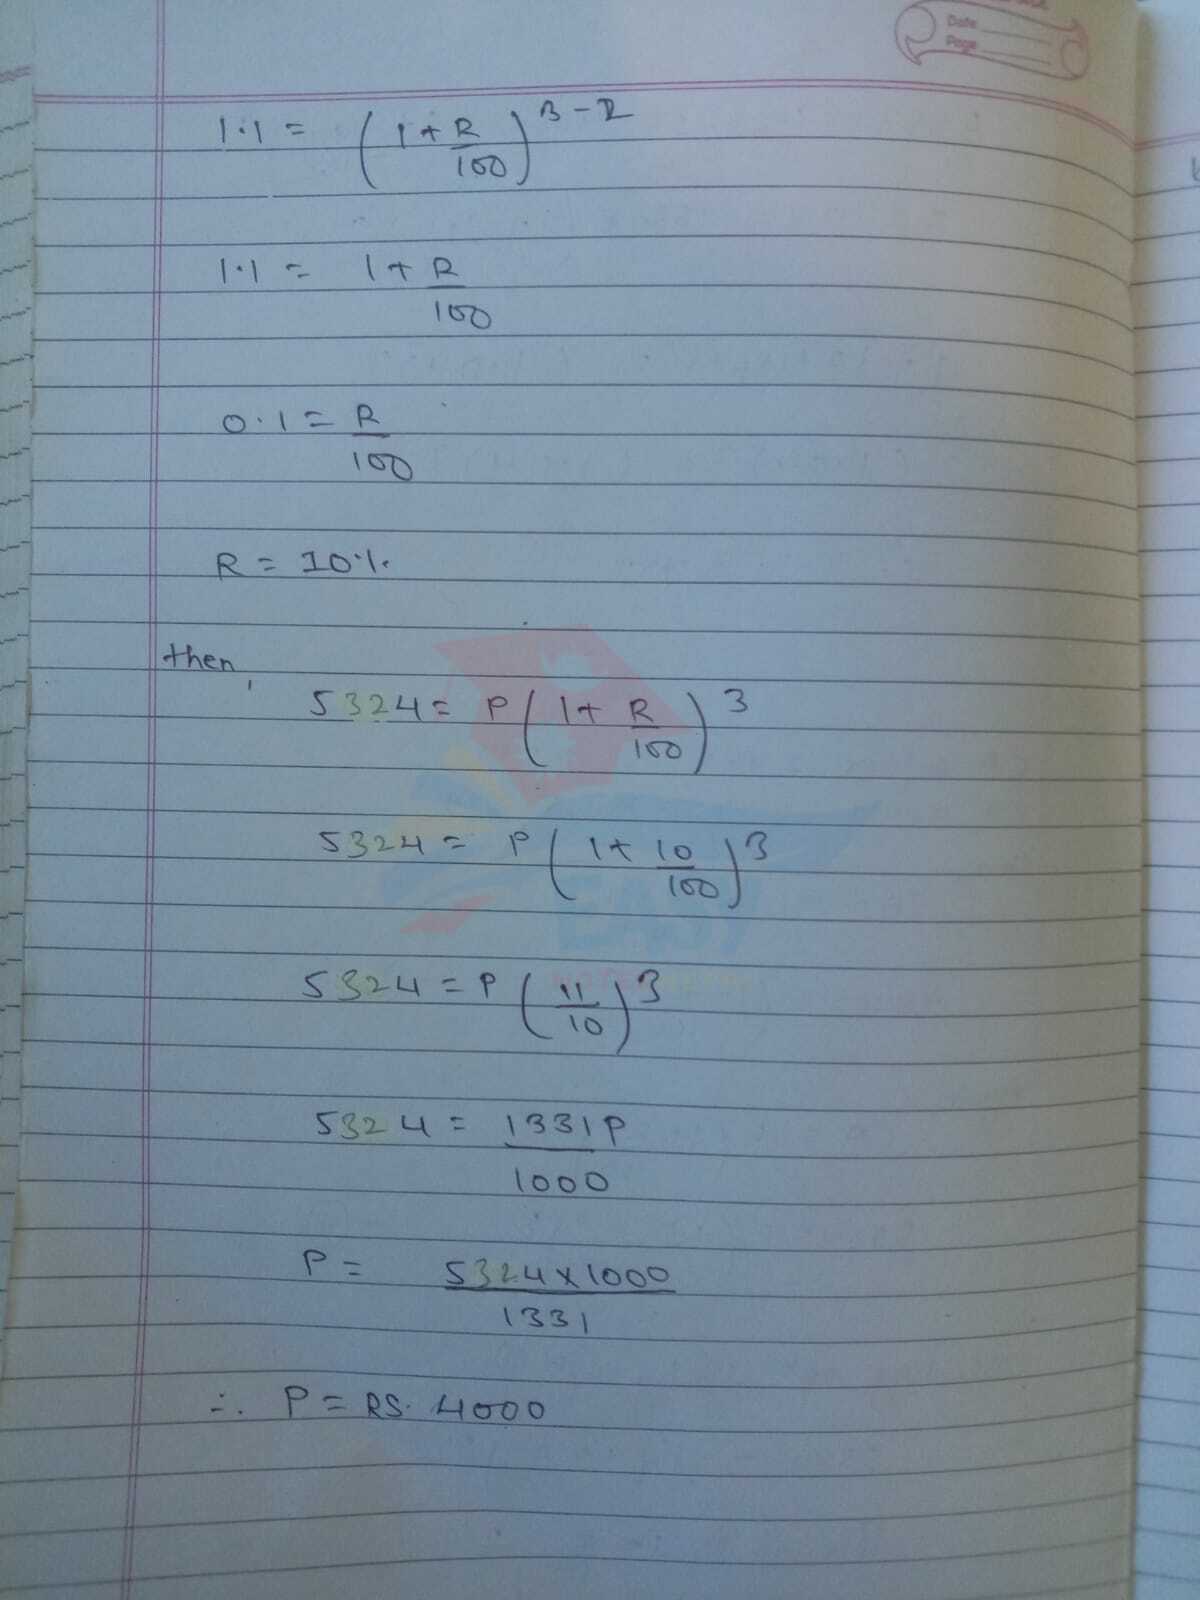 Date
Page
1.1 = (1 + R/100)^3-2
1.1 = 1 + R/100
0.1 = R/100
R = 10%
then,
5324 = P(1 + R/100)^3
5324 = P(1 + 10/100)^3
5324 = P(11/10)^3
5324 = 1331P/1000
P = 5324×1000/1331
∴ P = RS. 4000
EASY